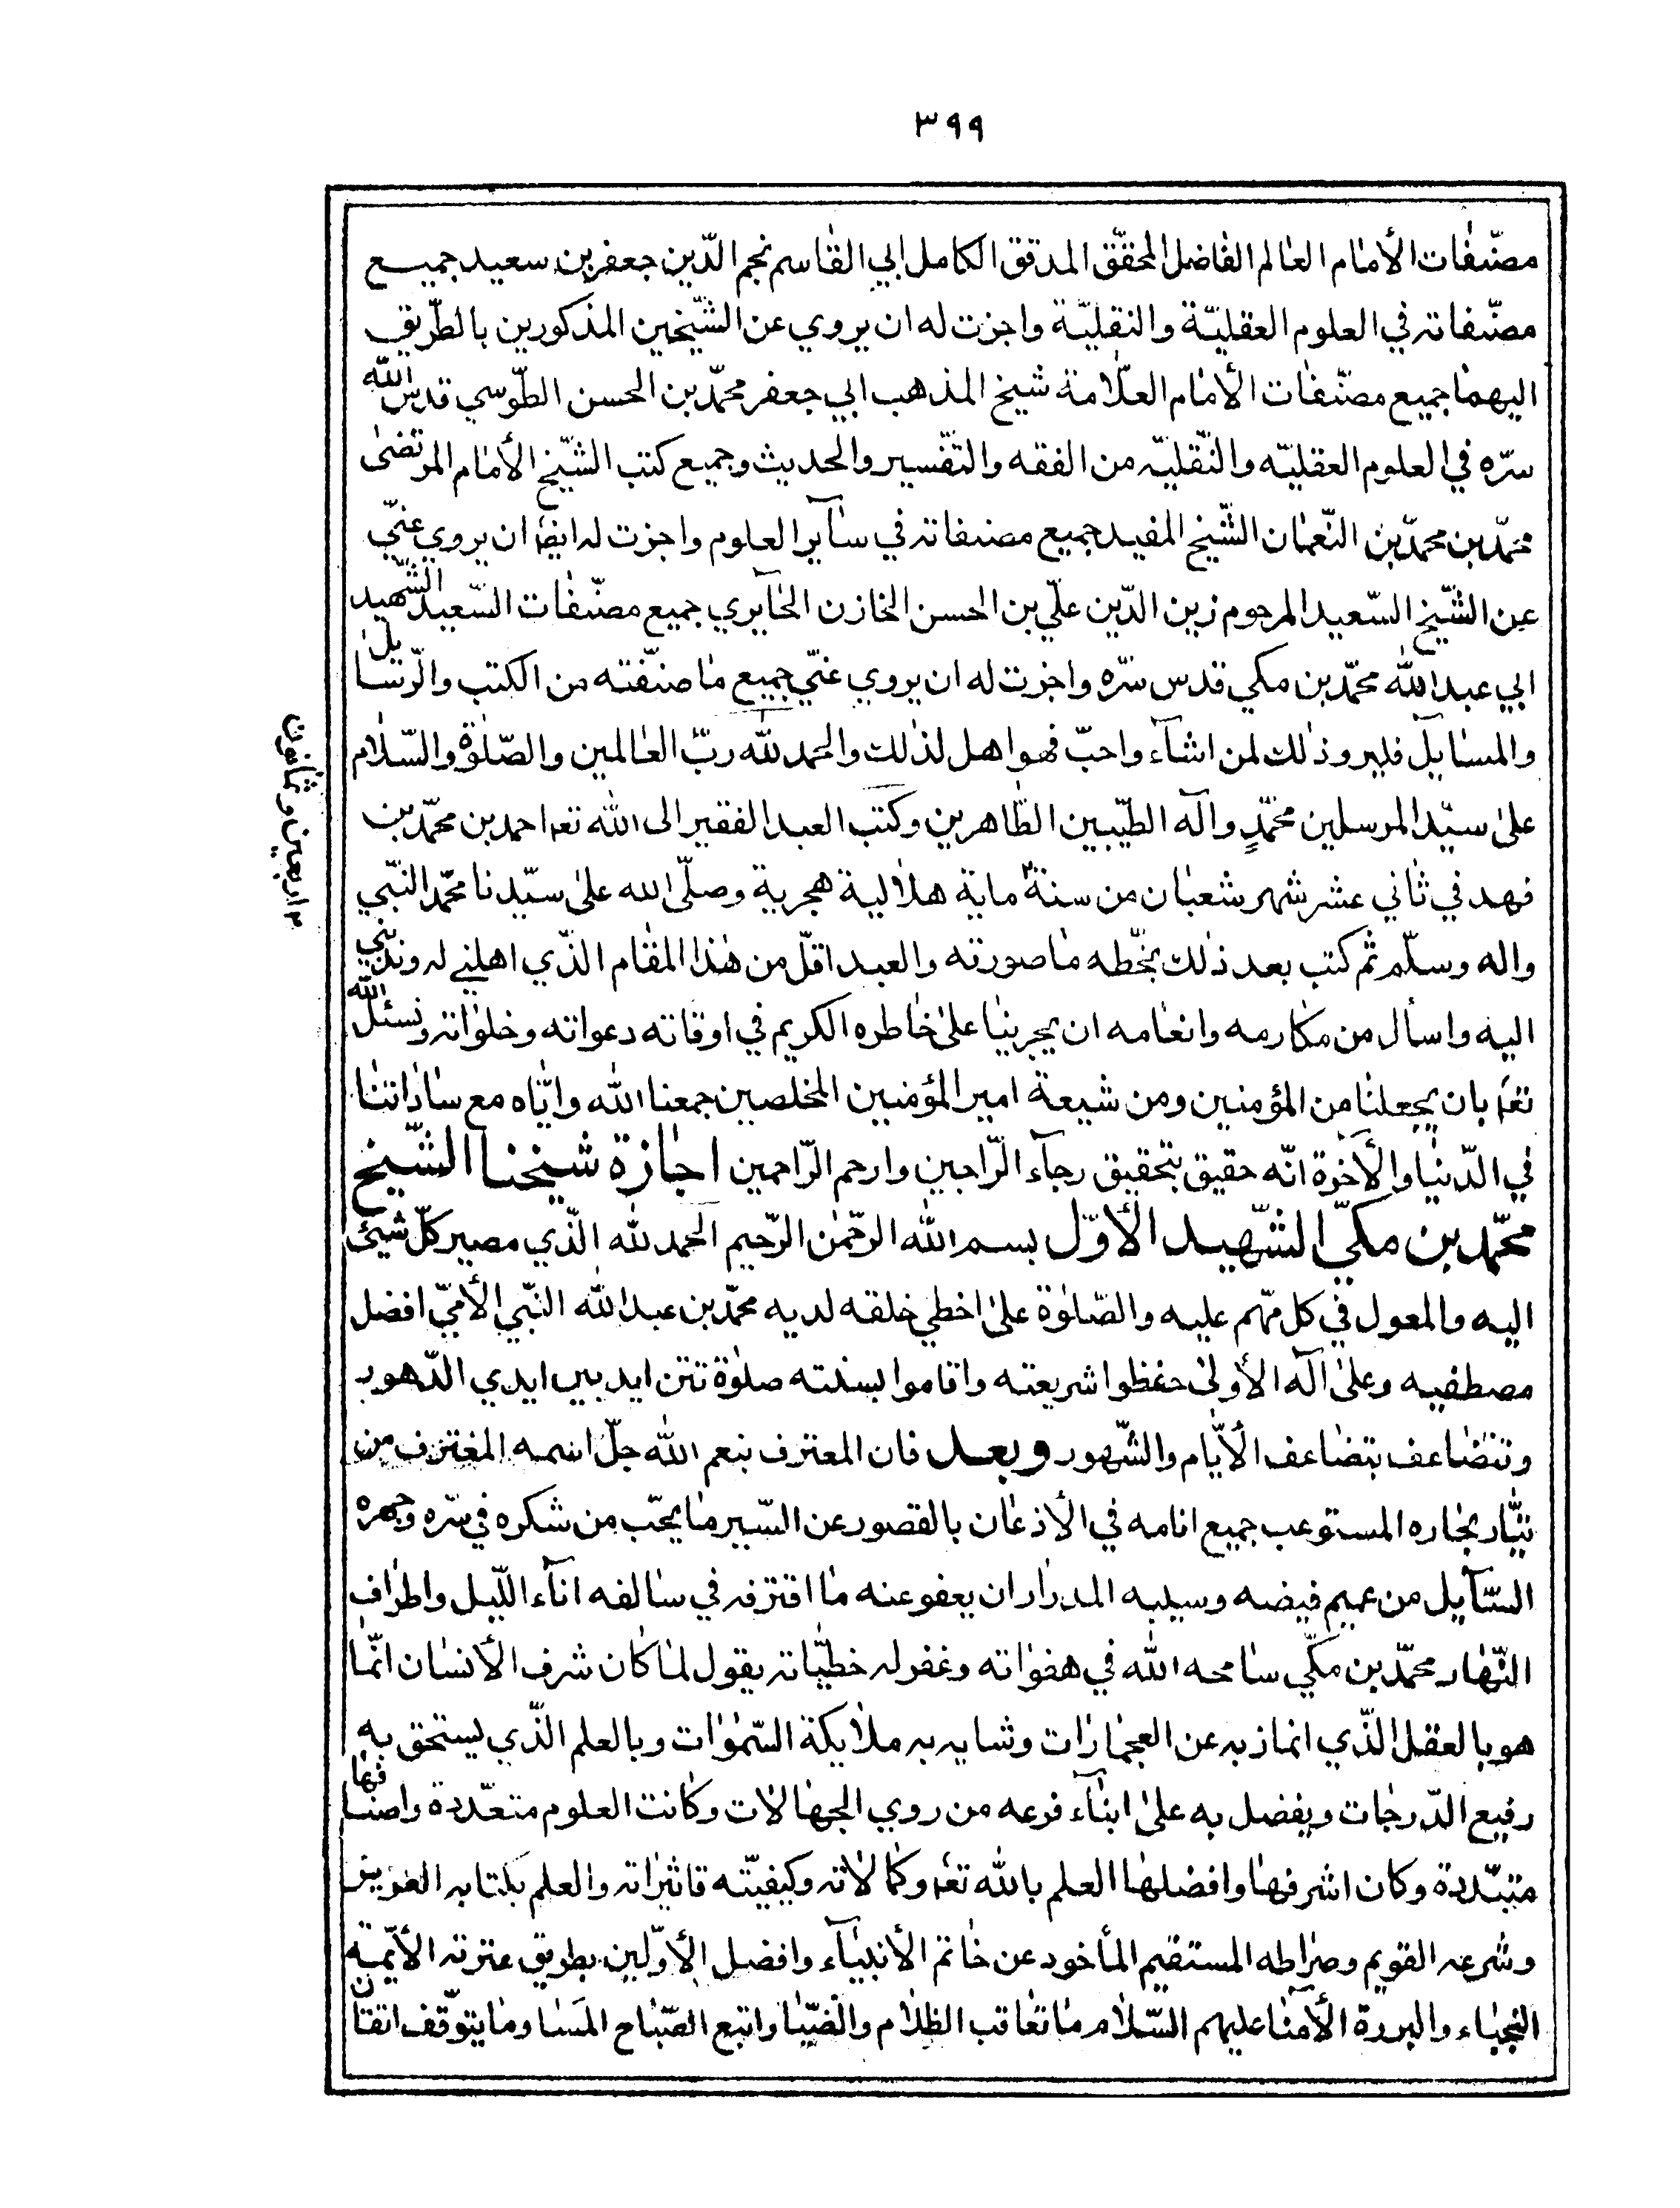 ٣٩٩
مصنّفات الأمام العالم الفاضل المحقّق المدقق الكامل ابي القاسم نجم الدّين جعفر بن سعيد جميع
مصنّفاته في العلوم العقليّة والنقليّة واجزت له ان يروي عن الشّيخين المذكورين بالطّريق
اليهما جميع مصنّفات الأمام العلّامة شيخ المذهب ابي جعفر محمّد بن الحسن الطّوسي قدس الله
سرّه في العلوم العقليّه والنّقليّه من الفقه والتّفسير والحديث وجميع كتب الشّيخ الأمام المرتضى
محمّد بن محمّد بن النّعمان الشّيخ المفيد جميع مصنفاته في سآير العلوم واجزت له ايضا ان يروي عنّي
عن الشّيخ السّعيد المرحوم زين الدّين علّي بن الحسن الخازن الحآيري جميع مصنّفات السّعيد الشّهيد
ابي عبد الله محمّد بن مكي قدس سرّه واجزت له ان يروي عنّي جميع ما صنّفته من الكتب والرّسايل
والمسآيل فليرو ذلك لمن اشآء واحبّ فهو اهل لذلك والحمد لله ربّ العالمين والصّلوة والسّلام
على سيّد المرسلين محمّدٍ وآله الطّيّبين الطّاهرين وكتب العبد الفقير الى الله تعم احمد بن محمّد بن
فهد في ثاني عشر شهر شعبان من سنة ماية هلالية هجرية وصلّى الله على سيّدنا محمّد النّبي
واله وسلّم ثم كتب بعد ذلك بخّطه ما صورته والعبد اقلّ من هذا المقام الّذي اهلني له وندبني
اليه واسأل من مكارمه وانعامه ان يجرينا على خاطره الكريم في اوقاته دعواته وخلواته ونسئل الله
تعم بان يجعلنا من المؤمنين ومن شيعة امير المؤمنين المخلصين جمعنا الله وايّاه مع ساداتنا
في الدّنيا والآخرة انّه حقيق بتحقيق رجآء الرّاجين وارحم الرّاحمين اجازة شيخنا الشّيخ
محمّد بن مكّي الشّهيد الأوّل بسم الله الرّحمن الرّحيم الحمد لله الّذي مصير كلّ شيئ
اليه والمعول في كل مهّم عليه والصّلوة على اخطي خلقه لديه محمّد بن عبد الله النّبي الأميّ افضل
مصطفيه وعلى آله الأولى حفظوا شريعته واقاموا بسنته صلوة تتزايد بين ايدي الدّهور
وتتضاعف بتضاعف الأيّام والشّهور وبعد فان المعترف بنعم الله جلّ اسمه المغترف من
تيّار بحاره المستوعب جميع انامه في الأذعان بالقصور عن السّير ما يحبّ من شكره في سرّه وجهره
السّآيل من عميم فيضه وسيبه المدرار ان يعفو عنه ما اقترفه في سالفه انآء اللّيل واطراف
النّهار محمّد بن مكّي سامحه الله في هفواته وغفر له خطيّاته يقول لما كان شرف الأنسان انّما
هو بالعقل الّذي انماز به عن العجمارات وشابه به ملايكة السّموات وبالعلم الّذي يستحق به
رفيع الدّرجات ويفضل به على ابنآء فرعه من روي الجهالات وكانت العلوم متعّددة واصنافها
متبّددة وكان اشرفها وافضلها العلم بالله تعم وكمالاته وكيفيّته تاثيراته والعلم بكتابه العزيز
وشرعه القويم وصراطه المستقيم المأخود عن خاتم الأنبيآء وافضل الأوّلين بطريق عترته الأيّمة
النجباء والبررة الأمنآ عليهم السّلام ما تعاقب الظلام والضّيا واتبع الصّباح المسا وما يتوّقف اتقان
اربعين وثمانين